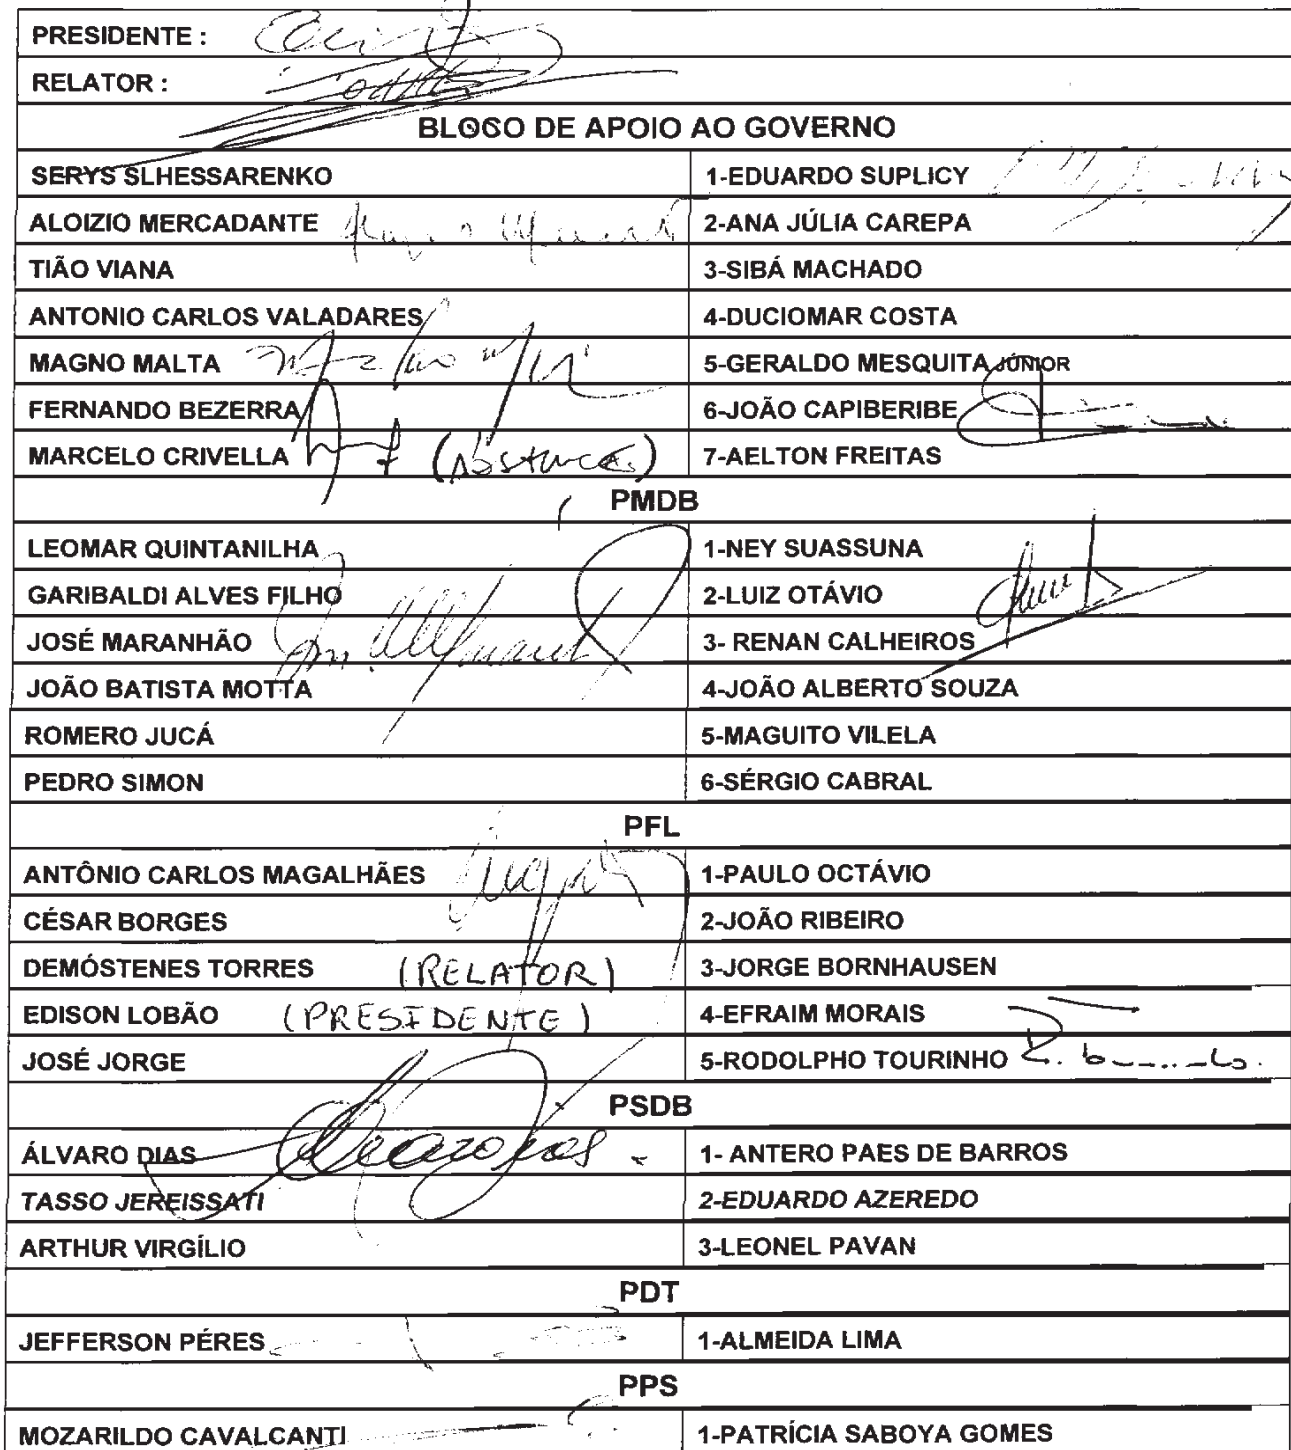 PRESIDENTE :
RELATOR :
BLOCO DE APOIO AO GOVERNO
SERYS SLHESSARENKO 1-EDUARDO SUPLICY
ALOIZIO MERCADANTE 2-ANA JÚLIA CAREPA
TIÃO VIANA 3-SIBÁ MACHADO
ANTONIO CARLOS VALADARES 4-DUCIOMAR COSTA
MAGNO MALTA 5-GERALDO MESQUITA JÚNIOR
FERNANDO BEZERRA 6-JOÃO CAPIBERIBE
MARCELO CRIVELLA 7-AELTON FREITAS
PMDB
LEOMAR QUINTANILHA 1-NEY SUASSUNA
GARIBALDI ALVES FILHO 2-LUIZ OTÁVIO
JOSÉ MARANHÃO 3- RENAN CALHEIROS
JOÃO BATISTA MOTTA 4-JOÃO ALBERTO SOUZA
ROMERO JUCÁ 5-MAGUITO VILELA
PEDRO SIMON 6-SÉRGIO CABRAL
PFL
ANTÔNIO CARLOS MAGALHÃES 1-PAULO OCTÁVIO
CÉSAR BORGES 2-JOÃO RIBEIRO
DEMÓSTENES TORRES (RELATOR) 3-JORGE BORNHAUSEN
EDISON LOBÃO (PRESIDENTE) 4-EFRAIM MORAIS
JOSÉ JORGE 5-RODOLPHO TOURINHO
PSDB
ÁLVARO DIAS 1- ANTERO PAES DE BARROS
TASSO JEREISSATI 2-EDUARDO AZEREDO
ARTHUR VIRGÍLIO 3-LEONEL PAVAN
PDT
JEFFERSON PÉRES 1-ALMEIDA LIMA
PPS
MOZARILDO CAVALCANTI 1-PATRÍCIA SABOYA GOMES